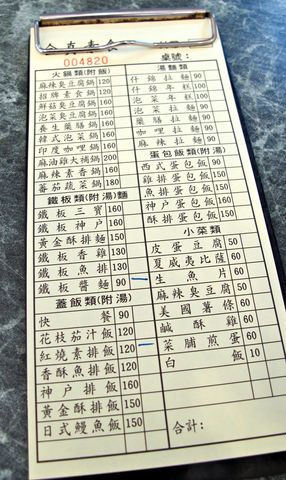 004820
桌號:
火鍋類(附飯)
麻辣臭豆腐鍋 120
招牌素食鍋 120
鮮菇臭豆腐鍋 160
泡菜臭豆腐鍋 160
養生藥膳鍋 160
韓式泡菜鍋 160
印度咖哩鍋 160
麻油雞大補鍋 200
麻辣素香鍋 160
蕃茄蔬菜鍋 180
鐵板類(附湯)麵
鐵板三寶 160
鐵板神戶 160
黃金酥排麵 150
鐵板香雞 130
鐵板魚排 130
鐵板醬麵 90
蓋飯類(附湯)
快餐 90
花枝茄汁飯 120
紅燒素排飯 120
香酥魚排飯 120
神戶排飯 160
黃金酥排飯 150
日式鰻魚飯 150
湯麵類
什錦拉麵 90
什錦年糕 100
泡菜年糕 100
泡菜拉麵 90
藥膳拉麵 90
咖哩拉麵 90
麻辣拉麵 90
蛋包飯類(附湯)
西式蛋包飯 90
雞排蛋包飯 150
魚排蛋包飯 150
神戶蛋包飯 150
酥排蛋包飯 150
小菜類
皮蛋豆腐 50
夏威夷比薩 60
生魚片 60
麻辣臭豆腐 50
美國薯條 60
鹹酥雞 60
菜脯煎蛋 60
白飯 10
合計: